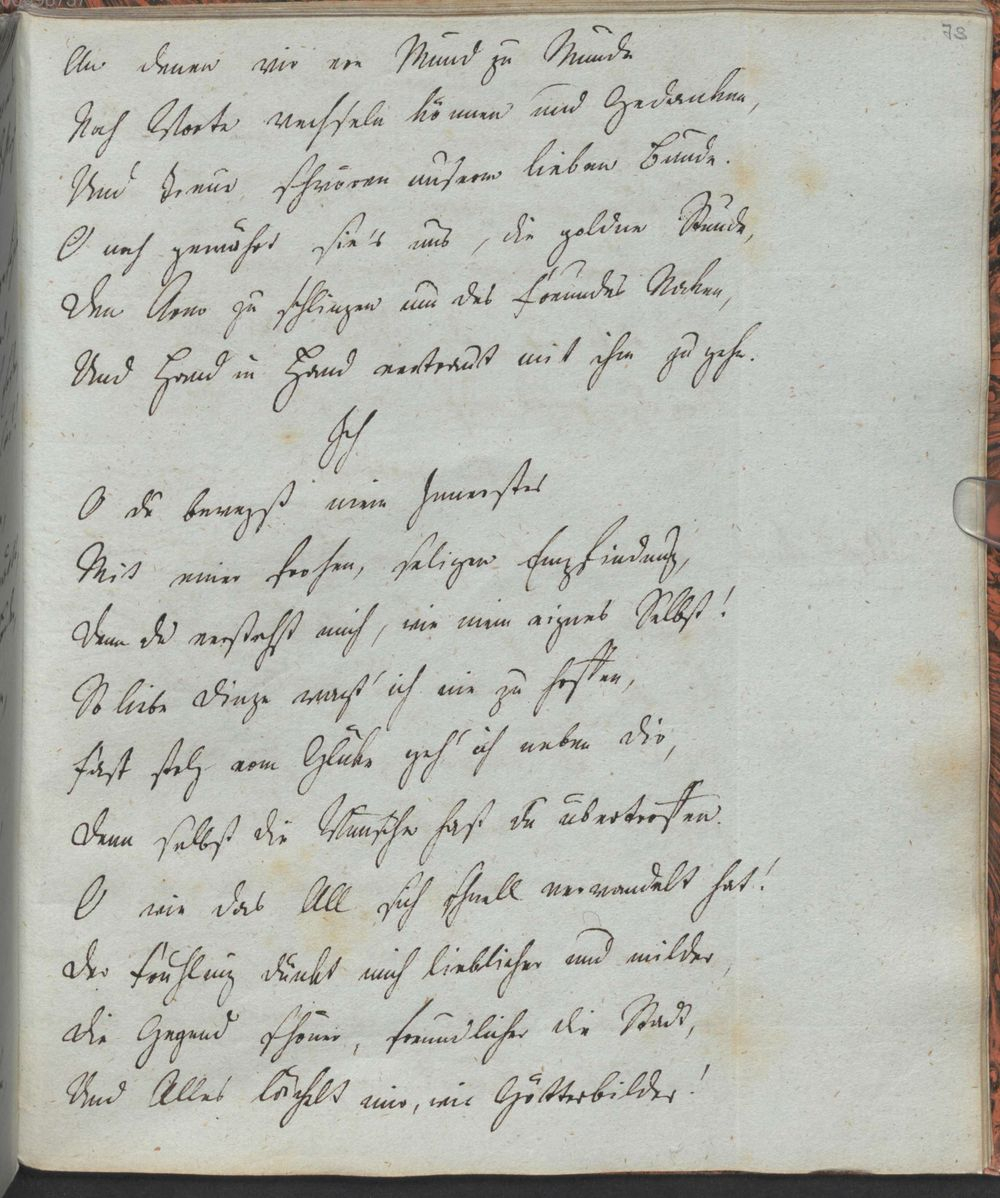 73
An denen wir von Mund zu Munde
Noch Worte wechseln können und Gedanken,
Und Treue schwören unserm lieben Bunde.
O noch gewährt sie's uns, die goldne Stunde,
Den Arm zu schlingen um des Freundes Nacken,
Und Hand in Hand vertraut mit ihm zu gehn.
Ich
O du bewegst mein Innerstes
Mit einer frohen, seligen Empfindung,
Denn du verstehst mich, wie mein eignes Selbst!
So liebe Dinge wagt' ich nie zu hoffen,
Fast stolz vom Glücke geh' ich neben dir,
Denn selbst die Wünsche hast du übertroffen.
O wie das All sich schnell verwandelt hat!
Der Frühling dünkt mich lieblicher und milder,
Die Gegend schöner, freundlicher die Stadt,
Und Alles lächelt mir, wie Götterbilder!